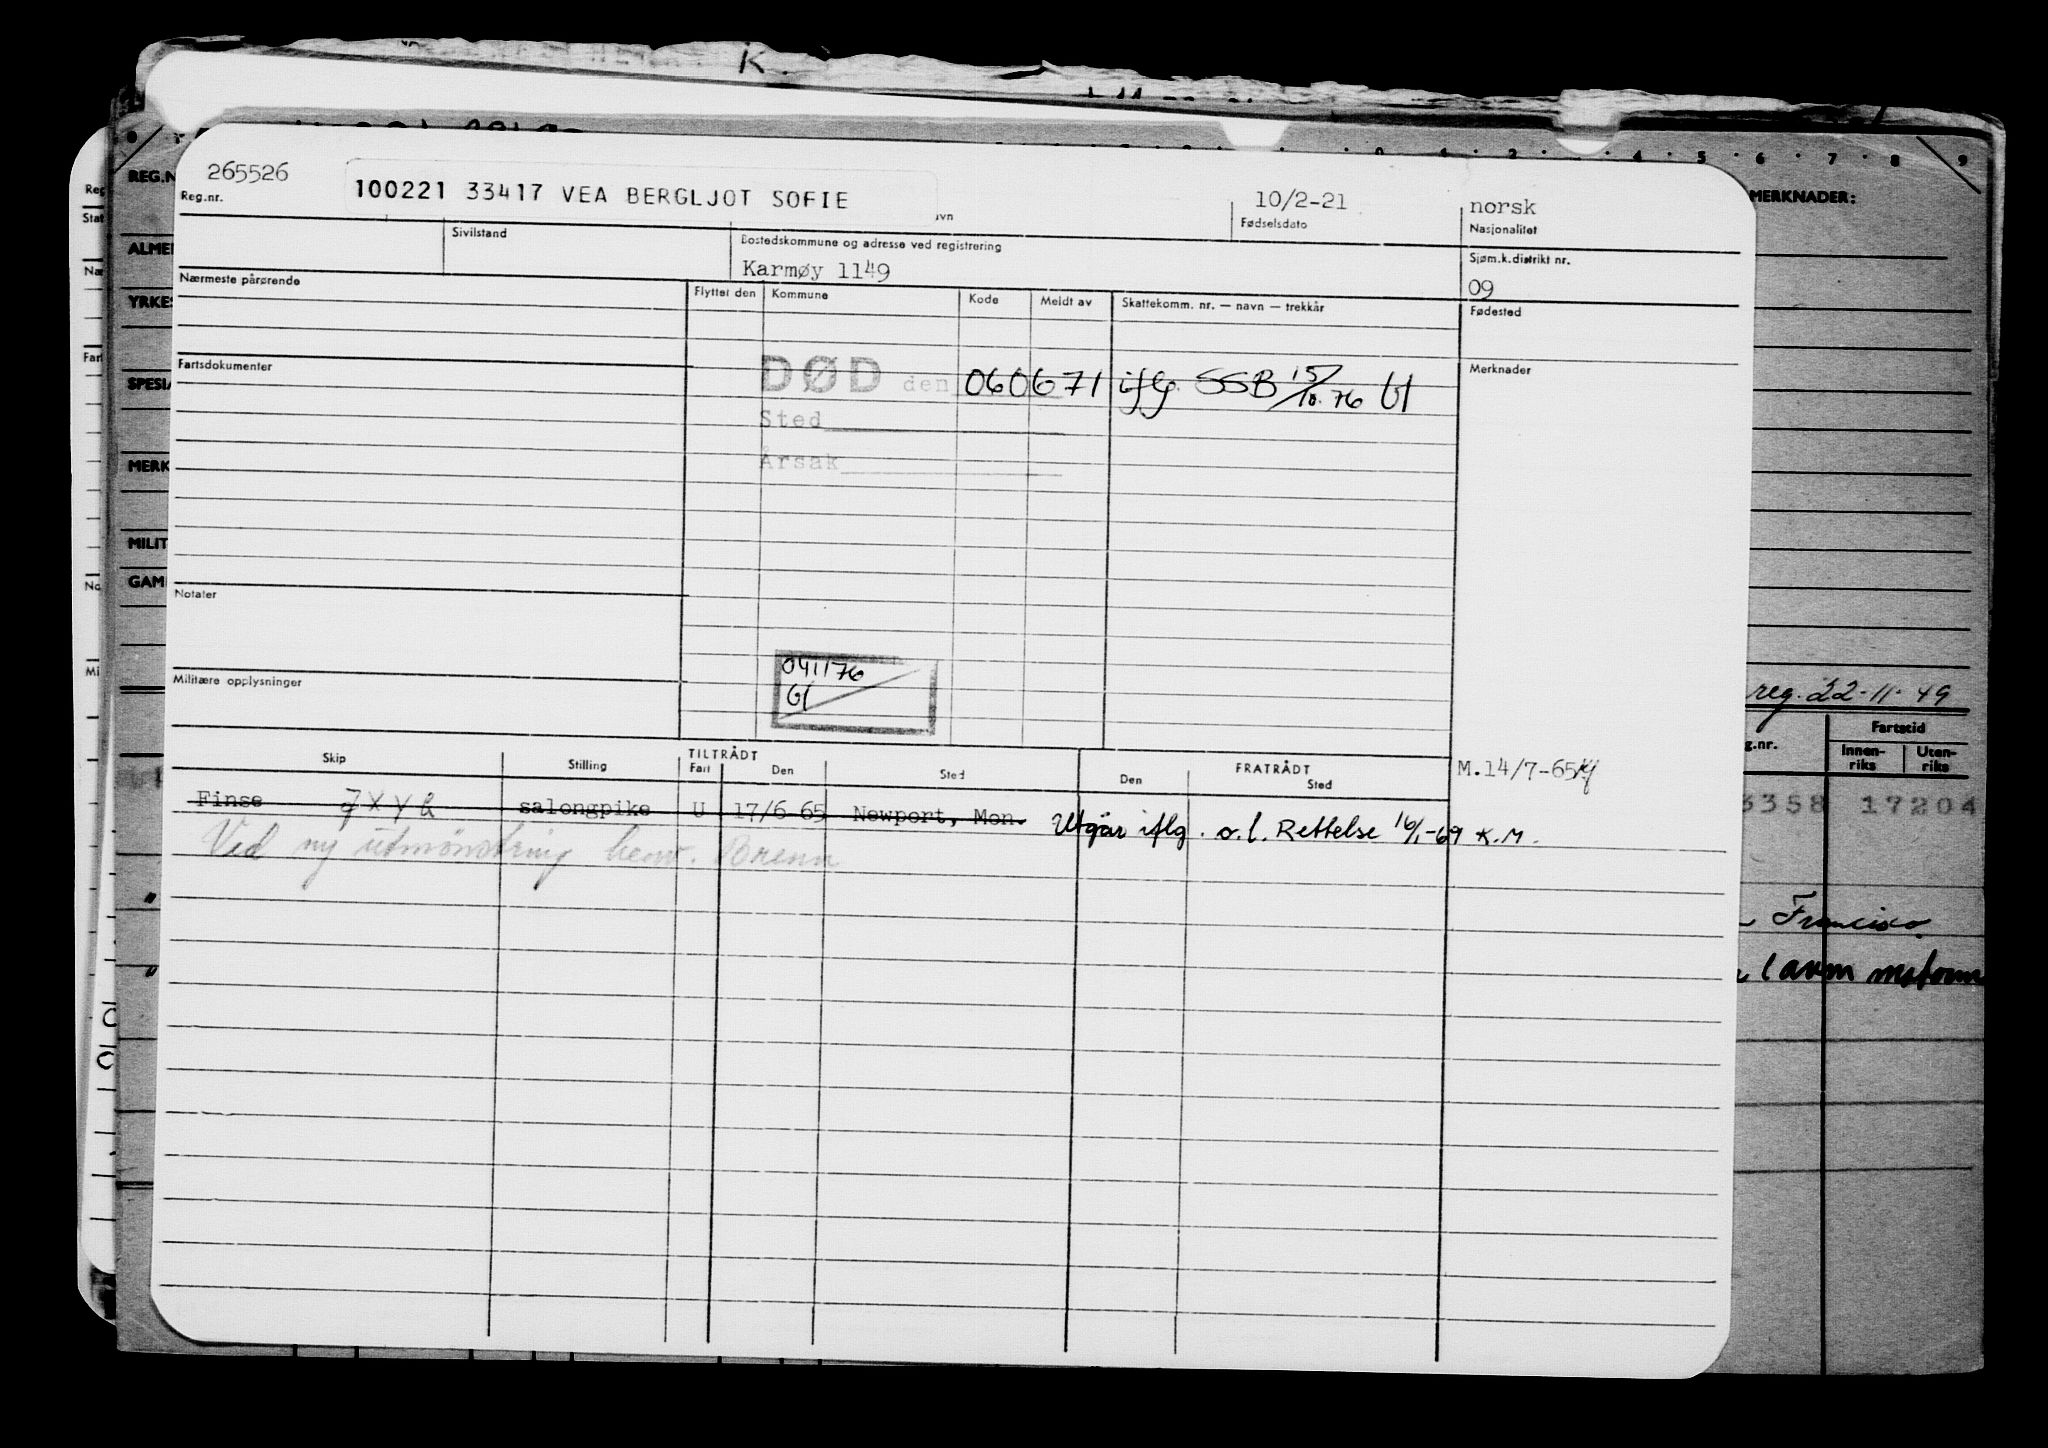 K.
0 1 2 3 4 5 6 7 8 9
REG.N
MERKNADER:
265526
Reg.nr.
100221 33417 VEA BERGLJOT SOFIE
avn
10/2-21
Fødselsdato
norsk
Nasjonalitet
Sivilstand
Bostedskommune og adresse ved registrering
Karmøy 1149
Sjøm.k.distrikt nr.
09
Nærmeste pårørende
Flyttet den
Kommune
Kode
Meldt av
Skattekomm. nr. — navn — trekkår
Fødested
Fartsdokumenter
Merknader
DØD den 060671 iflg. SSB 15/10.76
Sted
Årsak
Notater
041176
Militære opplysninger
Skip
Stilling
TILTRÅDT
Fart
Den
Sted
FRATRÅDT
Den
Sted
M.14/7-65
Finse
salongpike
U
17/6-65
Newport, Mon.
Utgår iflg. o.l. Rettelse 16/1-69 K.M.
Ved ny utmønstring henv. Brenn
Reg
Stat
ALMEN
YRKES
SPESIA
MERK
MILIT
GAM
Mi
reg. 22-11-49
g.nr.
Fartstid
Innen-
riks
Uten-
riks
3358 17204
Francisco